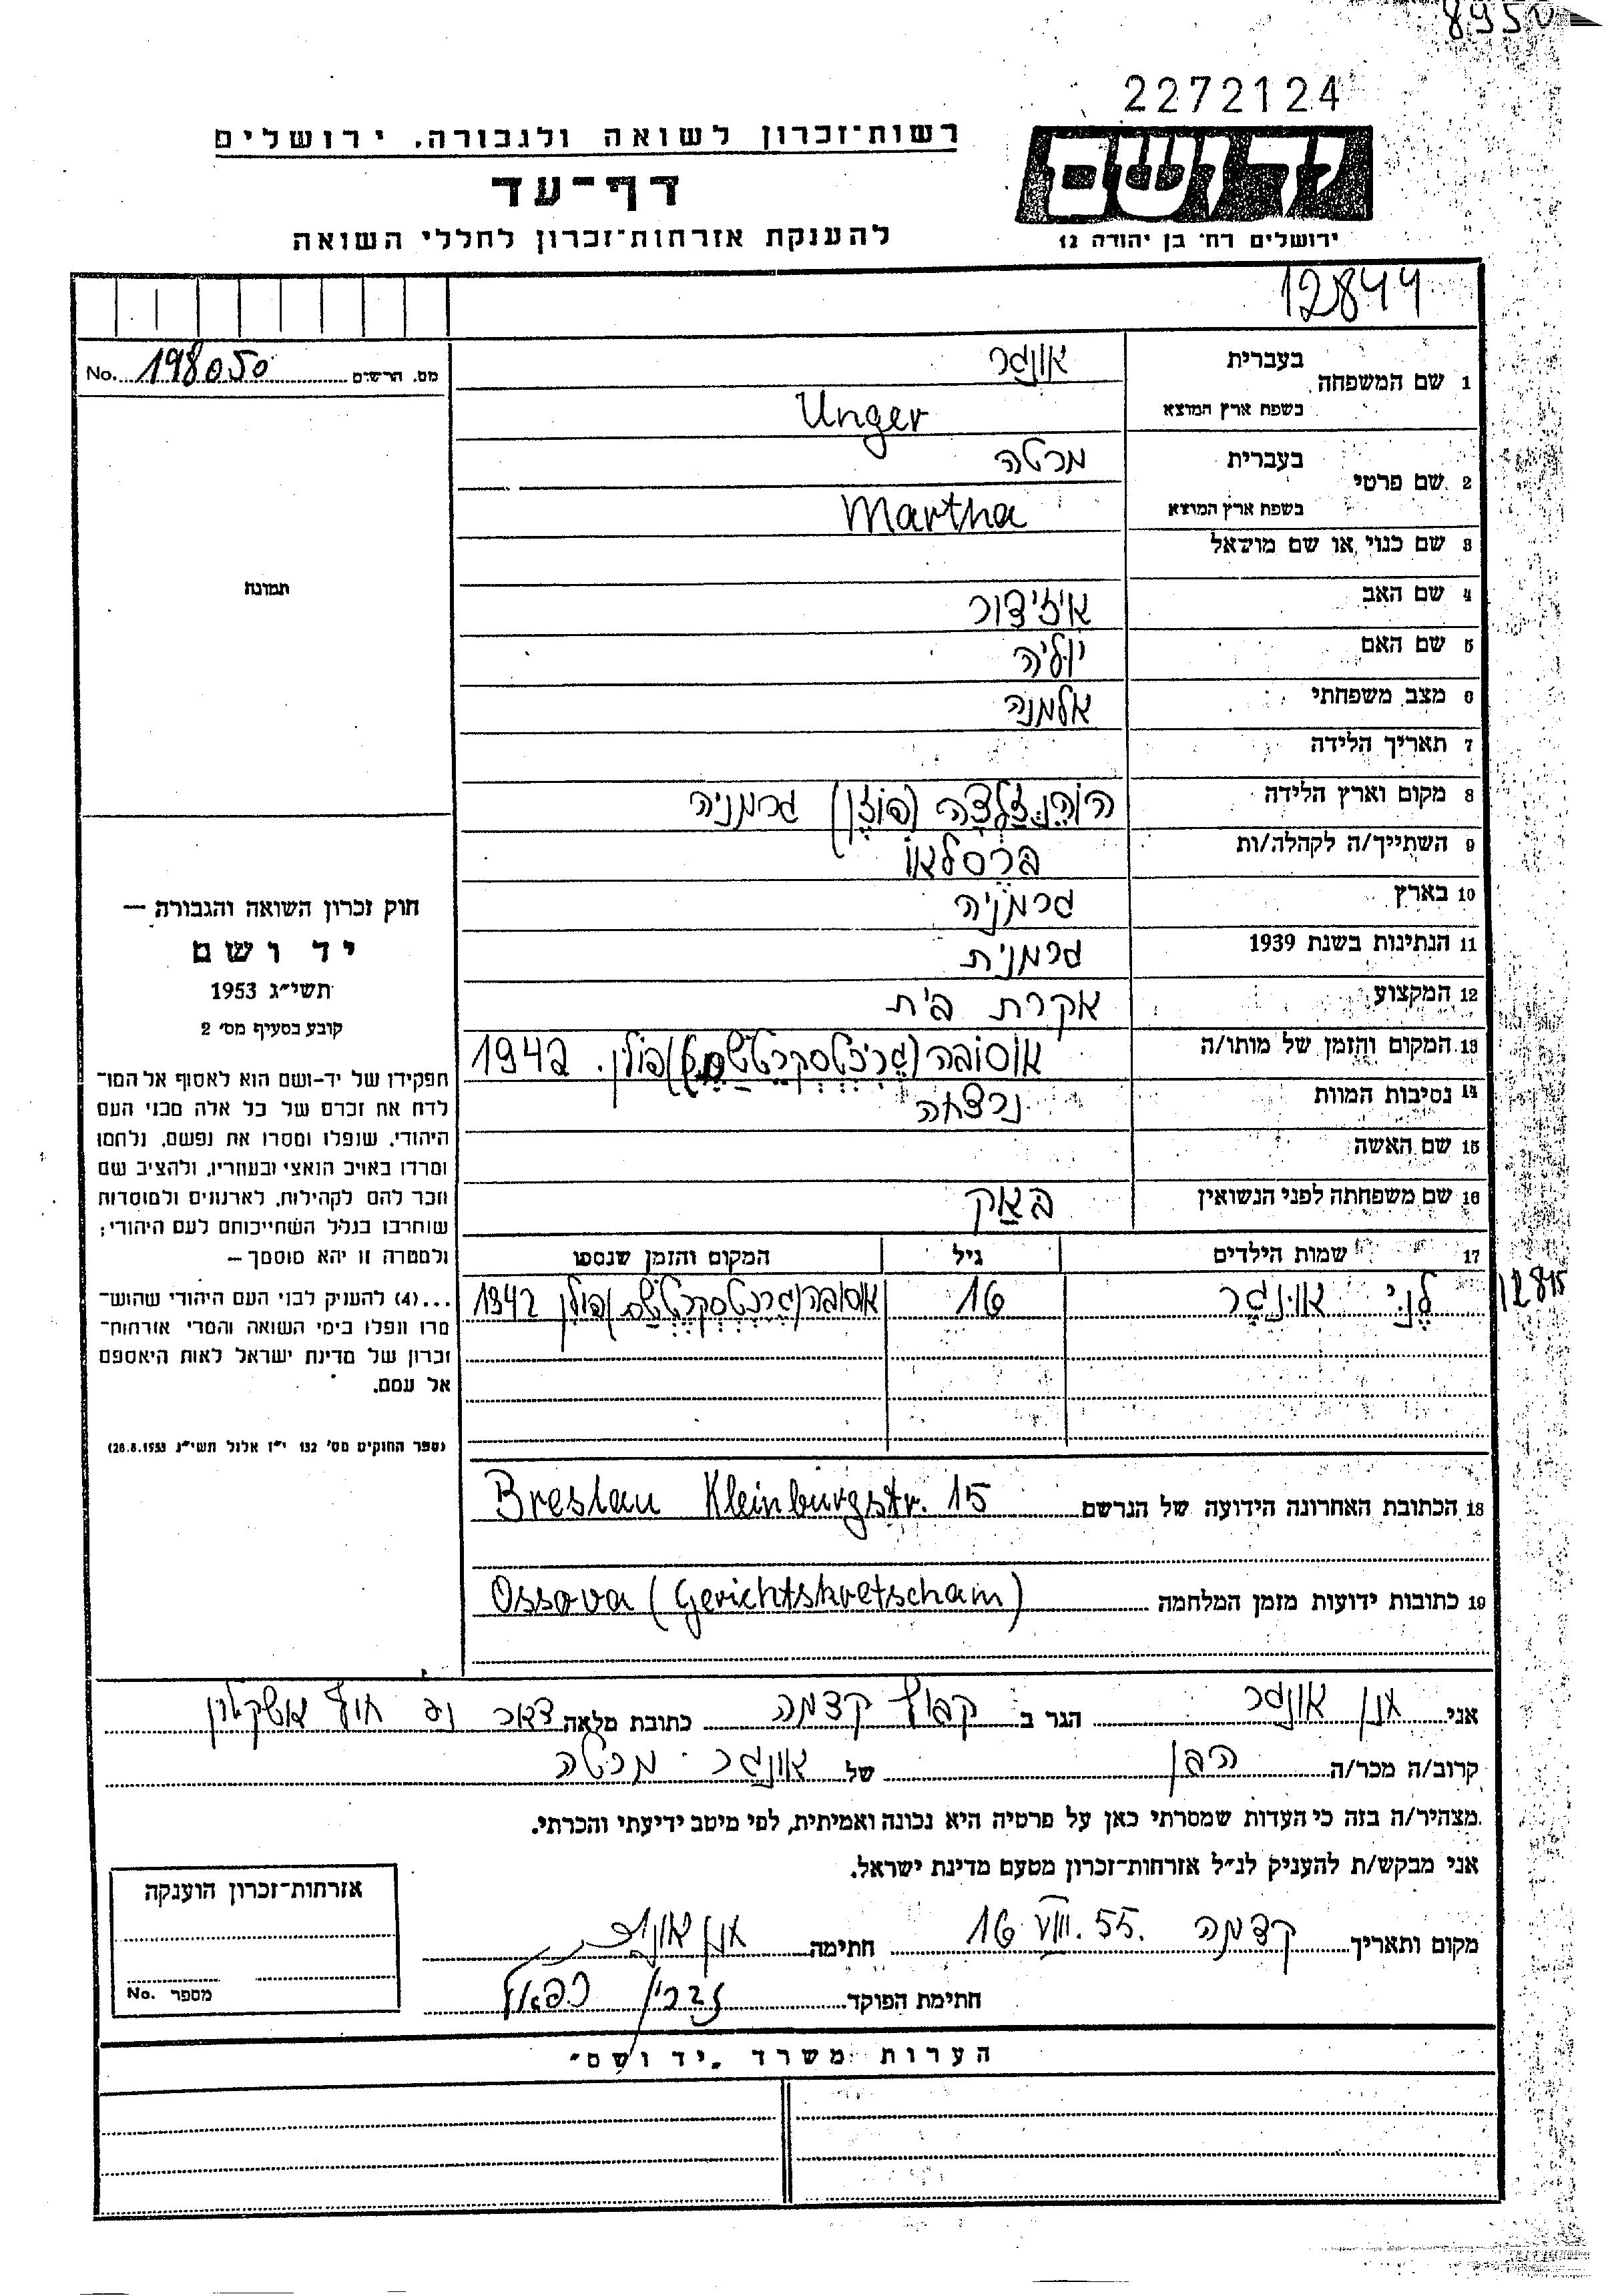 8950
2272124
רשות־זכרון לשואה ולגבורה, ירושלים
יד ושם
דף־עד
ירושלים רח׳ בן יהודה 12
להענקת אזרחות־זכרון לחללי השואה
12844
מס. הרשום No. 198050
1 שם המשפחה בעברית אונגר
בשפת ארץ המוצא Unger
2 שם פרטי בעברית מרטה
בשפת ארץ המוצא Martha
3 שם כנוי או שם מושאל
4 שם האב איזידור
5 שם האם יוליה
6 מצב משפחתי אלמנה
7 תאריך הלידה
8 מקום וארץ הלידה הוהנזלצה (פוזן) גרמניה
9 השתייך/ה לקהלה/ות ברסלאו
10 בארץ גרמניה
11 הנתינות בשנת 1939 גרמנית
12 המקצוע עקרת בית
13 המקום והזמן של מותו/ה אוסובה (גריכטסקרטשם) פולין. 1942
14 נסיבות המוות נרצחה
15 שם האשה
16 שם משפחתה לפני הנשואין באק
17 שמות הילדים גיל המקום והזמן שנספו
לני אונגר 16 אוסובה (גריכטסקרטשם) פולין 1942
12845
תמונה
חוק זכרון השואה והגבורה —
יד ושם
תשי״ג 1953
קובע בסעיף מס׳ 2
תפקידו של יד-ושם הוא לאסוף אל המו־
לדת את זכרם של כל אלה מבני העם
היהודי, שנפלו ומסרו את נפשם, נלחמו
ומרדו באויב הנאצי ובעוזריו, ולהציב שם
וזכר להם לקהילות, לארגונים ולמוסדות
שוחרבו בגלל השתייכותם לעם היהודי;
ולמטרה זו יהא מוסמך —
...(4) להעניק לבני העם היהודי שהוש־
מדו ונפלו בימי השואה והמרי אזרחות־
זכרון של מדינת ישראל לאות היאספם
אל עמם.
(ספר החוקים מס׳ 132 י״ז אלול תשי״ג 28.8.1953)
18 הכתובת האחרונה הידועה של הנרשם Breslau Kleinburgstr. 15
19 כתובות ידועות מזמן המלחמה Ossova (Gerichtskretscham)
אני אונגר הגר ב קבוץ קדמה כתובת מלאה דאר נע חוף אשקלון
קרוב/ה מכר/ה הבן של אונגר מרטה
מצהיר/ה בזה כי העדות שמסרתי כאן על פרטיה היא נכונה ואמיתית, לפי מיטב ידיעתי והכרתי.
אני מבקש/ת להעניק לנ״ל אזרחות־זכרון מטעם מדינת ישראל.
מקום ותאריך קדמה 16 VIII. 55. חתימה
חתימת הפוקד
אזרחות־זכרון הוענקה
מספר No.
הערות משרד „יד ושם״